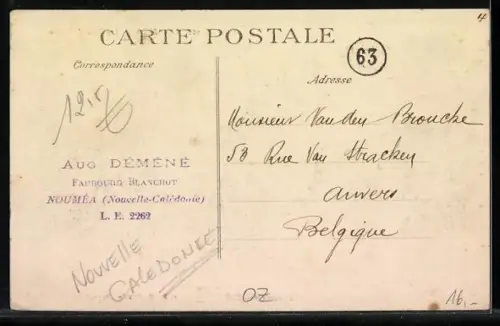 CARTE POSTALE
63
Correspondance
Adresse
12,5
Monsieur Van den Broucke
53 Rue Van Stracken
Anvers
Belgique
AUG DÉMÉNÉ
FAUBOURG BLANCHOT
NOUMÉA (Nouvelle-Calédonie)
L. E. 2262
NOUVELLE
CALEDONIE
OZ
16,-